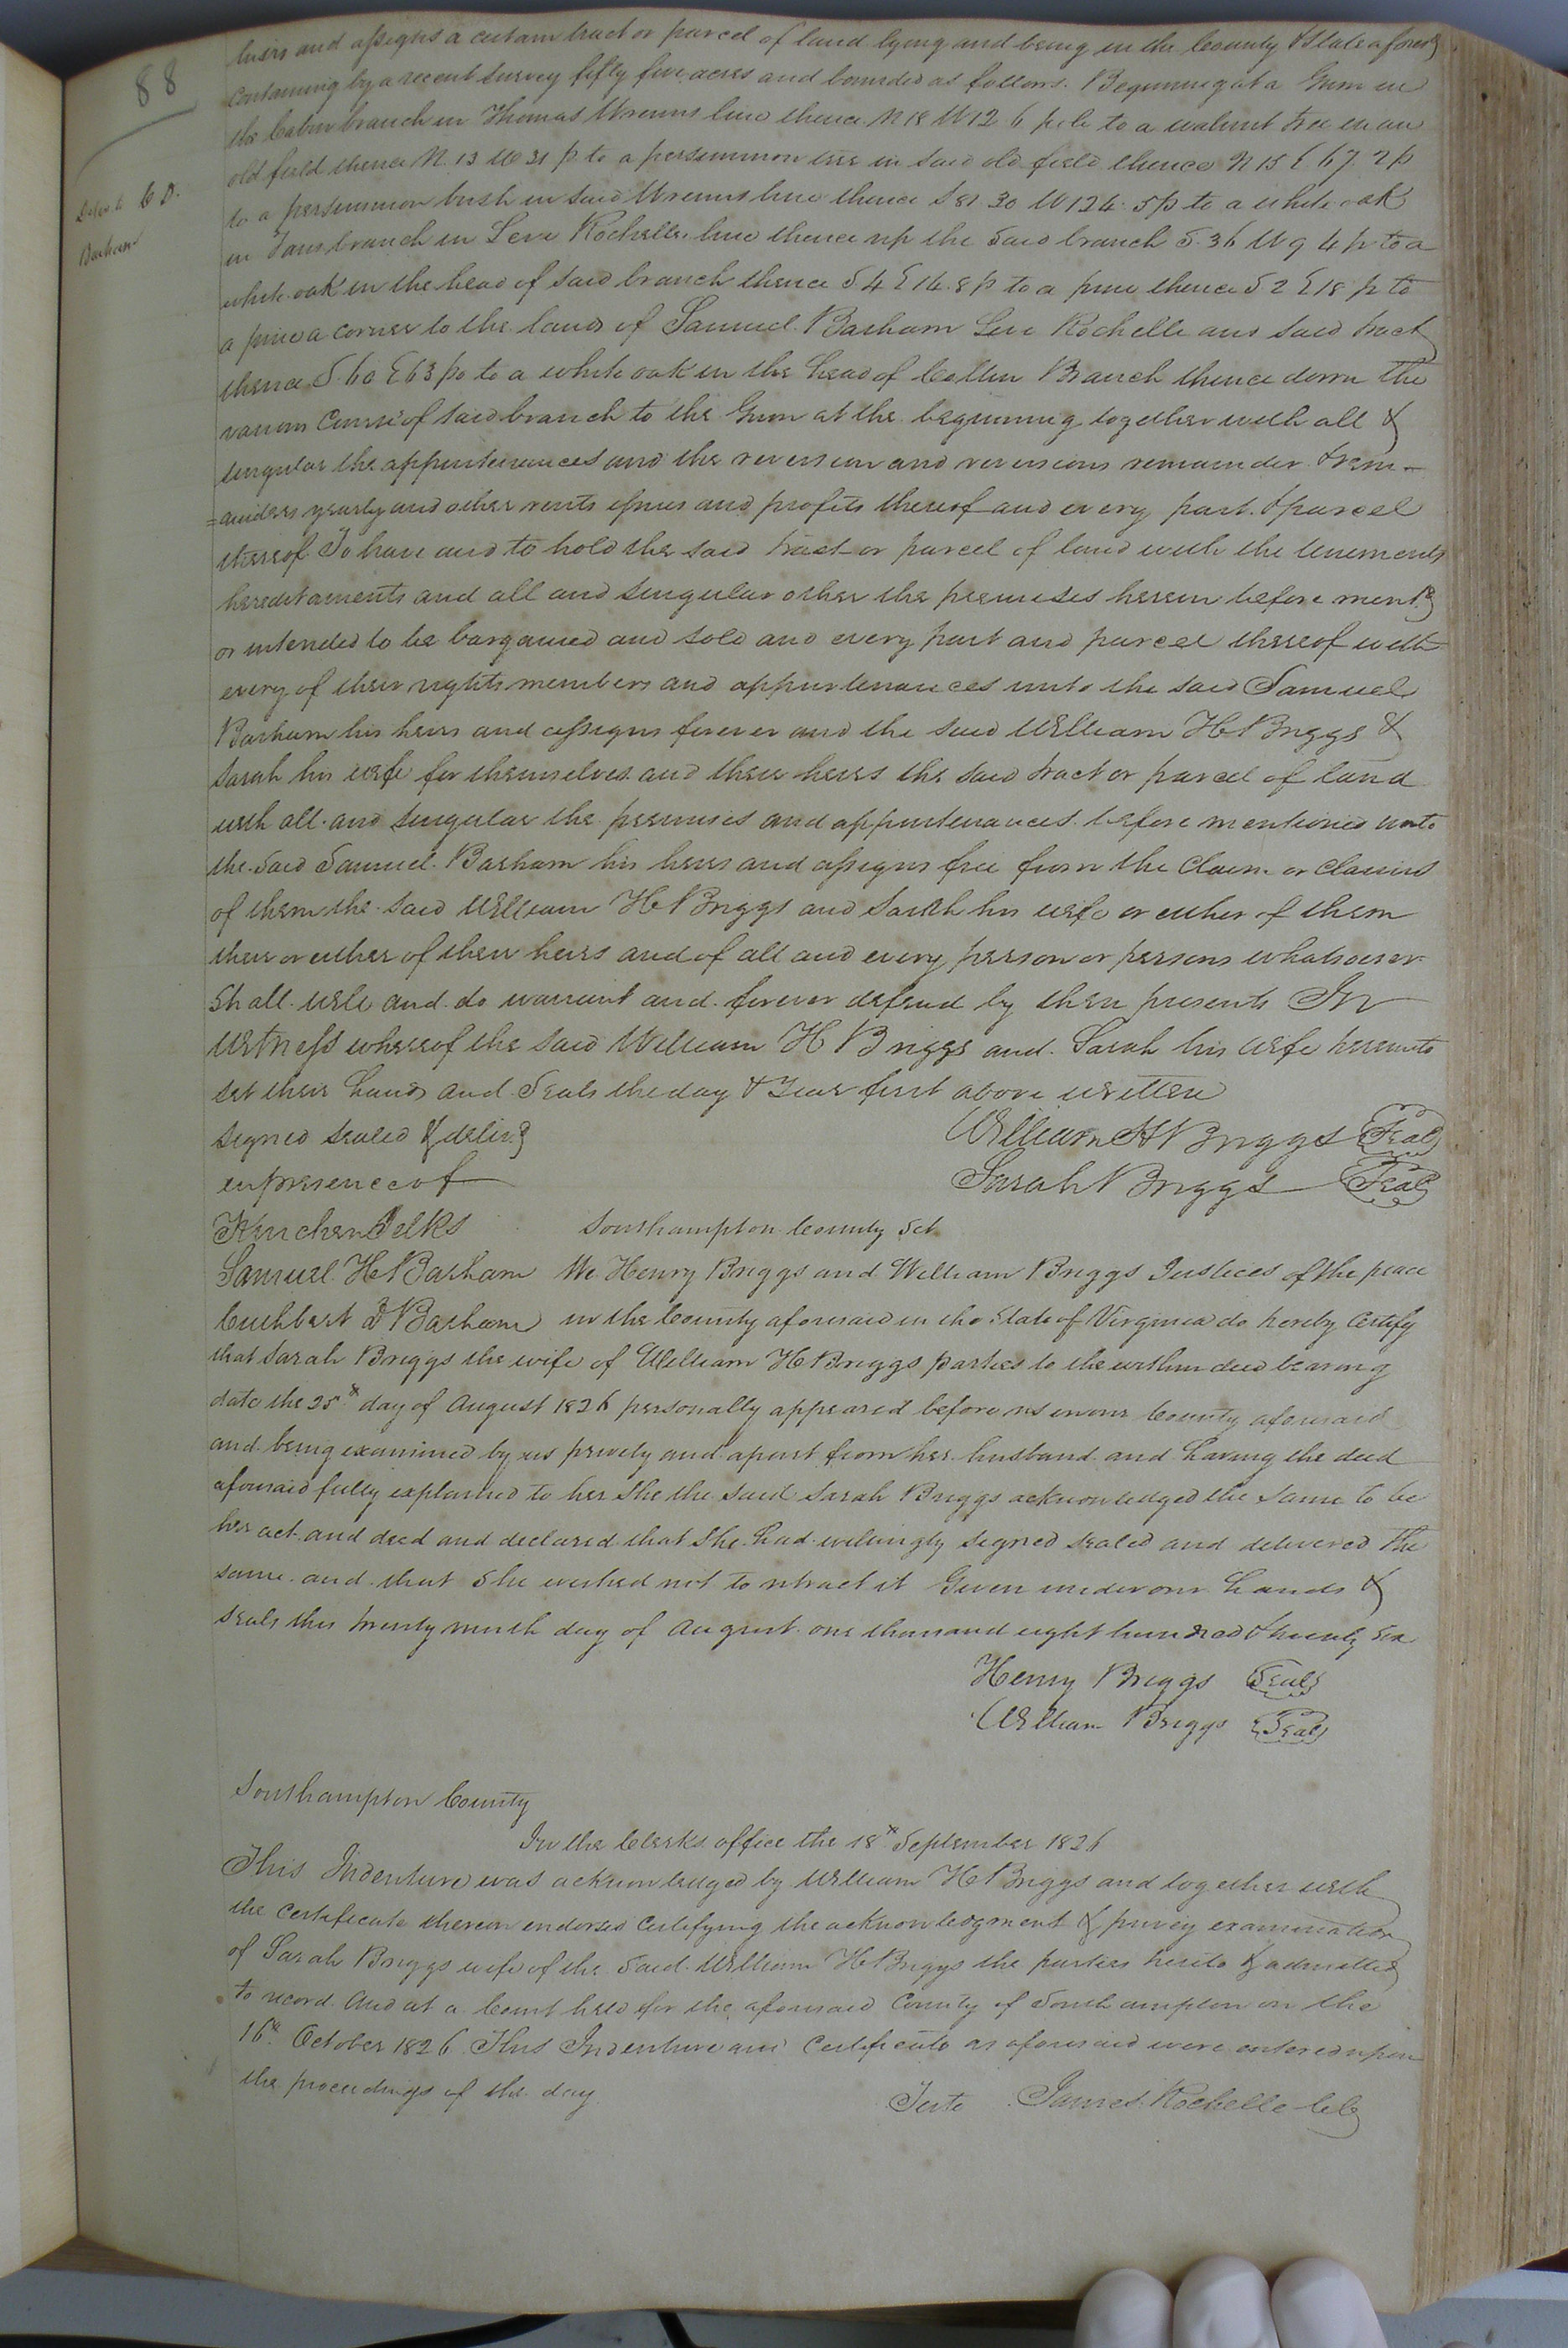 88
Deliv'd to C D.
Barham
heirs and assigns a certain tract or parcel of land lying and being in the County & State aforesd
containing by a recent survey fifty five acres and bounded as follows. Beginning at a Gum in
the Cabin branch in Thomas Wrenns line thence N 18 W 12 6 pole to a walnut tree in an
old field thence N. 13 W 31 p to a persimmon tree in said old field thence N 15 E 67. 2 p
to a persimmon bush in said Wrenns line thence S 81 30 W 124. 5 p to a white oak
in branch in Levi Rochelles line thence up the said branch S. 36 W 9 4 p to a
white oak in the head of said branch thence S 4 E 14. 8 p to a pine thence S 2 E 18 p to
a pine a corner to the lands of Samuel Barham Levi Rochelle and said tract
thence S. 60 E 63 po to a white oak in the head of Branch thence down the
various Course of said branch to the Gum at the beginning together with all &
singular the appurtenances and the reversion and reversions remainder & rem-
=ainders yearly and other rents issues and profits thereof and every part & parcel
thereof. To have and to hold the said tract or parcel of land with the tenements
hereditaments and all and singular other the premises herein before mentd
or intended to be bargained and sold and every part and parcel thereof with
every of their rights members and appurtenances unto the said Samuel
Barham his heirs and assigns forever and the said William H Briggs &
Sarah his wife for themselves and their heirs the said tract or parcel of land
with all and singular the premises and appurtenances before mentioned unto
the said Samuel Barham his heirs and assigns free from the claim or claims
of them the said William H Briggs and Sarah his wife or either of them
their or either of their heirs and of all and every person or persons whatsoever
shall will and do warrant and forever defend by these presents In
witness whereof the said William H Briggs and Sarah his wife hereunto
set their hands and seals the day & year first above written
signed sealed & delivd
in presence of
William H Briggs Seal
Sarah Briggs Seal
Kinchen Jelks
Samuel H Barham
Cuthbert D Barham
Southampton County Sct
We Henry Briggs and William Briggs Justices of the peace
in the County aforesaid in the State of Virginia do hereby certify
that Sarah Briggs the wife of William H Briggs parties to the within deed bearing
date the 25th day of August 1826 personally appeared before us in our County aforesaid
and being examined by us privily and apart from her husband and having the deed
aforesaid fully explained to her she the said Sarah Briggs acknowledged the same to be
her act and deed and declared that she had willingly signed sealed and delivered the
same and that she wished not to retract it Given under our hands &
seals this twenty ninth day of August one thousand eight hundred & twenty six
Henry Briggs Seal
William Briggs Seal
Southampton County
In the Clerks office the 18th September 1826
This Indenture was acknowledged by William H Briggs and together with
the certificate thereon endorsed certifying the acknowledgment & privy examination
of Sarah Briggs wife of the said William H Briggs the parties hereto & admitted
to record. And at a Court held for the aforesaid County of Southampton on the
16th October 1826 This Indenture and Certificate as aforesaid were entered upon
the proceedings of the day
Teste James Rochelle Clk